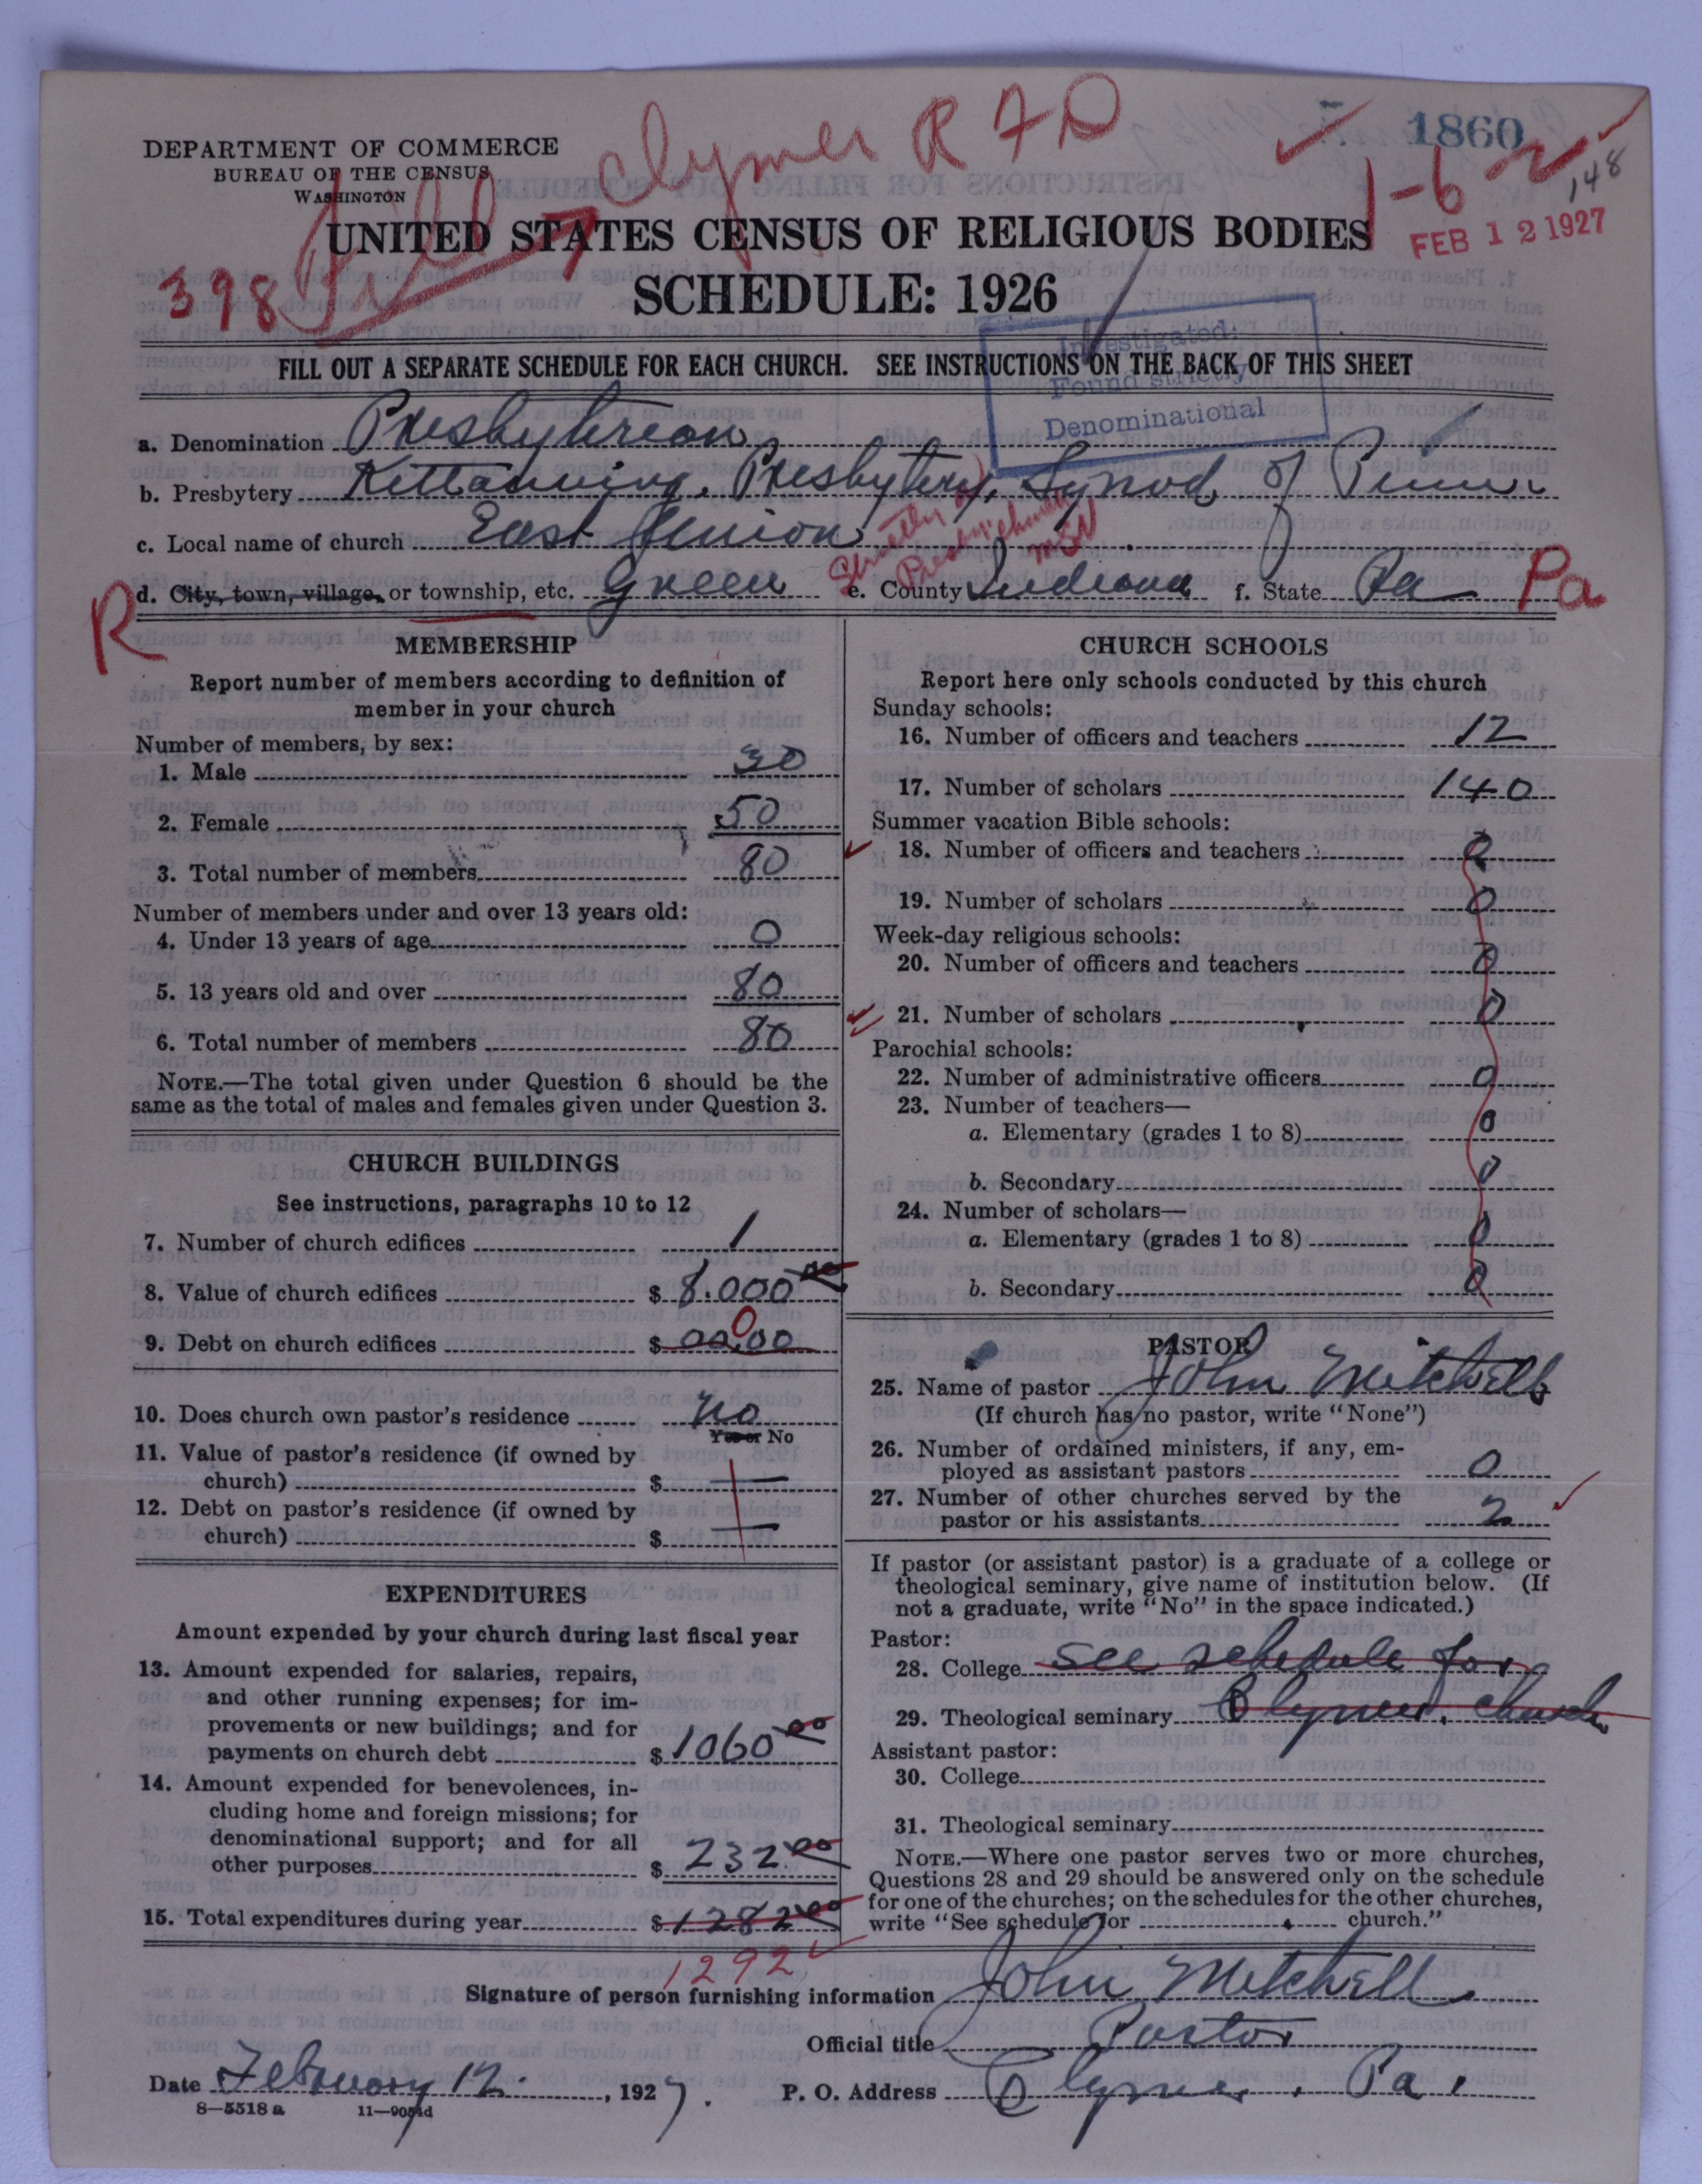 DEPARTMENT OF COMMERCE
BUREAU OF THE CENSUS
WASHINGTON
Clymer R F D
1860
1-6
148
FEB 12 1927
398
UNITED STATES CENSUS OF RELIGIOUS BODIES
SCHEDULE: 1926
FILL OUT A SEPARATE SCHEDULE FOR EACH CHURCH. SEE INSTRUCTIONS ON THE BACK OF THIS SHEET
Investigated:
Found strictly
Denominational
a. Denomination Presbyterian
b. Presbytery Kittanning, Presbytery, Synod of Penn.
c. Local name of church East Union
Strictly a
Presby. church
R d. City, town, village, or township, etc. Green e. County Indiana f. State Pa Pa
MEMBERSHIP
Report number of members according to definition of
member in your church
Number of members, by sex:
1. Male 30
2. Female 50
3. Total number of members 80
Number of members under and over 13 years old:
4. Under 13 years of age 0
5. 13 years old and over 80
6. Total number of members 80
NOTE.—The total given under Question 6 should be the
same as the total of males and females given under Question 3.
CHURCH BUILDINGS
See instructions, paragraphs 10 to 12
7. Number of church edifices 1
8. Value of church edifices $ 8.000 00
9. Debt on church edifices $ 00.00 0
10. Does church own pastor's residence no
Yes or No
11. Value of pastor's residence (if owned by
church) $ —
12. Debt on pastor's residence (if owned by
church) $ —
EXPENDITURES
Amount expended by your church during last fiscal year
13. Amount expended for salaries, repairs,
and other running expenses; for im-
provements or new buildings; and for
payments on church debt $ 1060 00
14. Amount expended for benevolences, in-
cluding home and foreign missions; for
denominational support; and for all
other purposes $ 232 00
15. Total expenditures during year $ 1282 00
1292
CHURCH SCHOOLS
Report here only schools conducted by this church
Sunday schools:
16. Number of officers and teachers 12
17. Number of scholars 140
Summer vacation Bible schools:
18. Number of officers and teachers 0
19. Number of scholars 0
Week-day religious schools:
20. Number of officers and teachers 0
21. Number of scholars 0
Parochial schools:
22. Number of administrative officers 0
23. Number of teachers—
a. Elementary (grades 1 to 8) 0
b. Secondary 0
24. Number of scholars—
a. Elementary (grades 1 to 8) 0
b. Secondary 0
PASTOR
25. Name of pastor John Mitchell
(If church has no pastor, write "None")
26. Number of ordained ministers, if any, em-
ployed as assistant pastors 0
27. Number of other churches served by the
pastor or his assistants 2
If pastor (or assistant pastor) is a graduate of a college or
theological seminary, give name of institution below. (If
not a graduate, write "No" in the space indicated.)
Pastor:
28. College see schedule for
29. Theological seminary Clymer. church
Assistant pastor:
30. College
31. Theological seminary
NOTE.—Where one pastor serves two or more churches,
Questions 28 and 29 should be answered only on the schedule
for one of the churches; on the schedules for the other churches,
write "See schedule for church."
Signature of person furnishing information John Mitchell
Official title Pastor
Date February 12. , 1927. P. O. Address Clymer. Pa.
8—5518 a 11—9051d